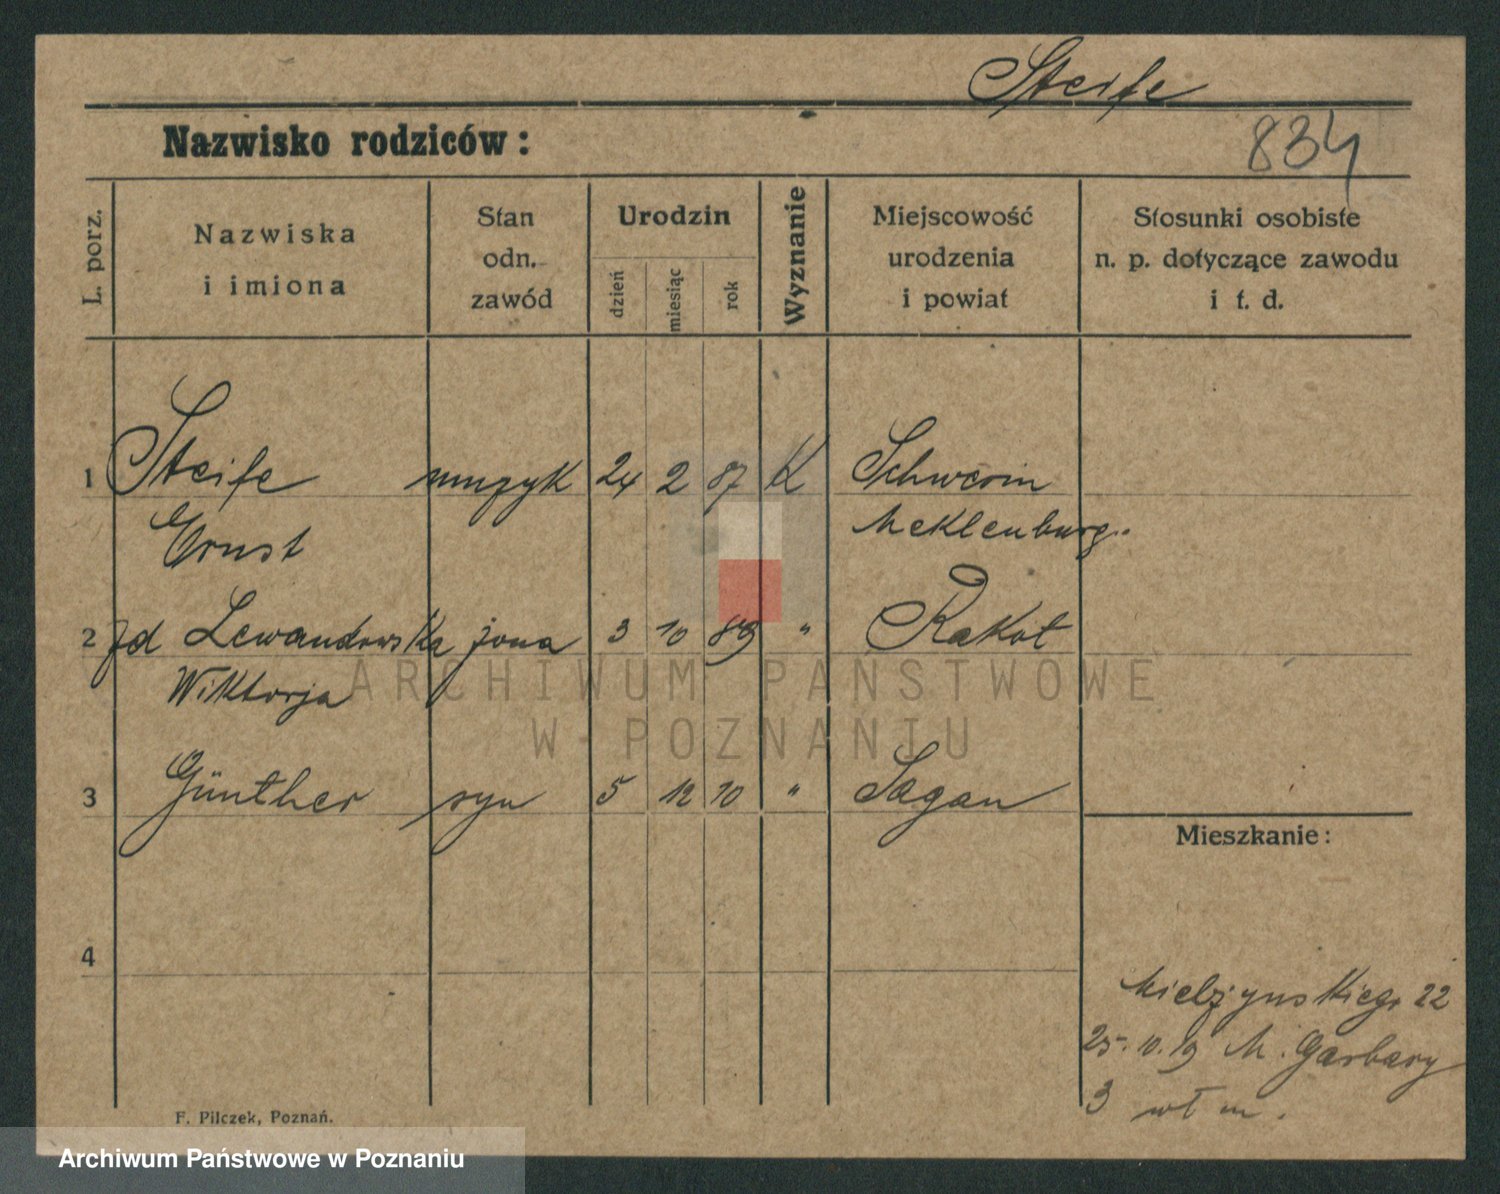 Steife
Nazwisko rodziców:
834
L. porz.
Nazwiska
i imiona
Stan
odn.
zawód
Urodzin
dzień
miesiąc
rok
Wyznanie
Miejscowość
urodzenia
i powiat
Stosunki osobiste
n. p. dotyczące zawodu
i t. d.
1 Steife muzyk 24 2 87 K Schwerin
Ernst Meklenburg
2 zd Lewandowska żona 3 10 89 " Rakot
Wiktorja
3 Günther syn 5 12 10 " Sagan
Mieszkanie:
4
Mielżynskiego 22
25.10.19 M. Garbary
3
F. Pilczek, Poznań.
ARCHIWUM PAŃSTWOWE
W POZNANIU
Archiwum Państwowe w Poznaniu